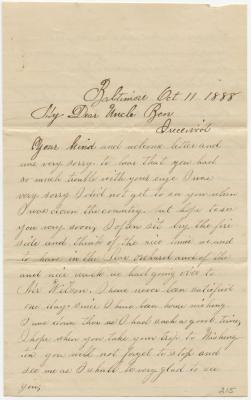 Baltimore Oct 11 1888
My Dear Uncle Ben
I received
Your kind and welcome letter and
was very sorry to hear that you had
so much trouble with your I was
very sorry I did not get to see you when
I was down the country but hope to see
you very soon, I often sit by the fire
side and think of the nice times we used
to have in the and of the
and nice we had going over to
Mr Wilson. I have never been satisfied
one day since I have been home wishing
I was down there as I had such a good time,
I hope when you take your trip to Washing
ton you will not forget to stop and
see me as I shall be very glad to see
you,
215